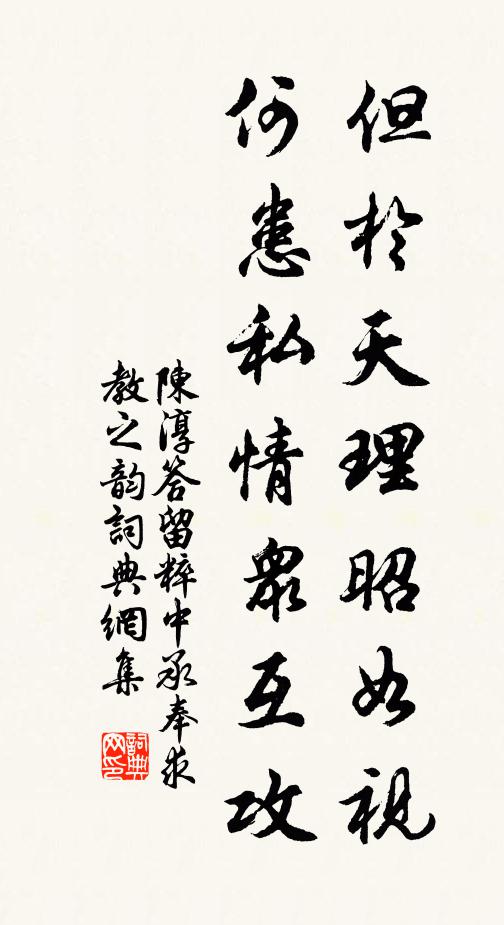 但於天理昭如視
何患私情眾互攻
陳淳答留粹中承奉求
教之韵詞典網集
詞典网印